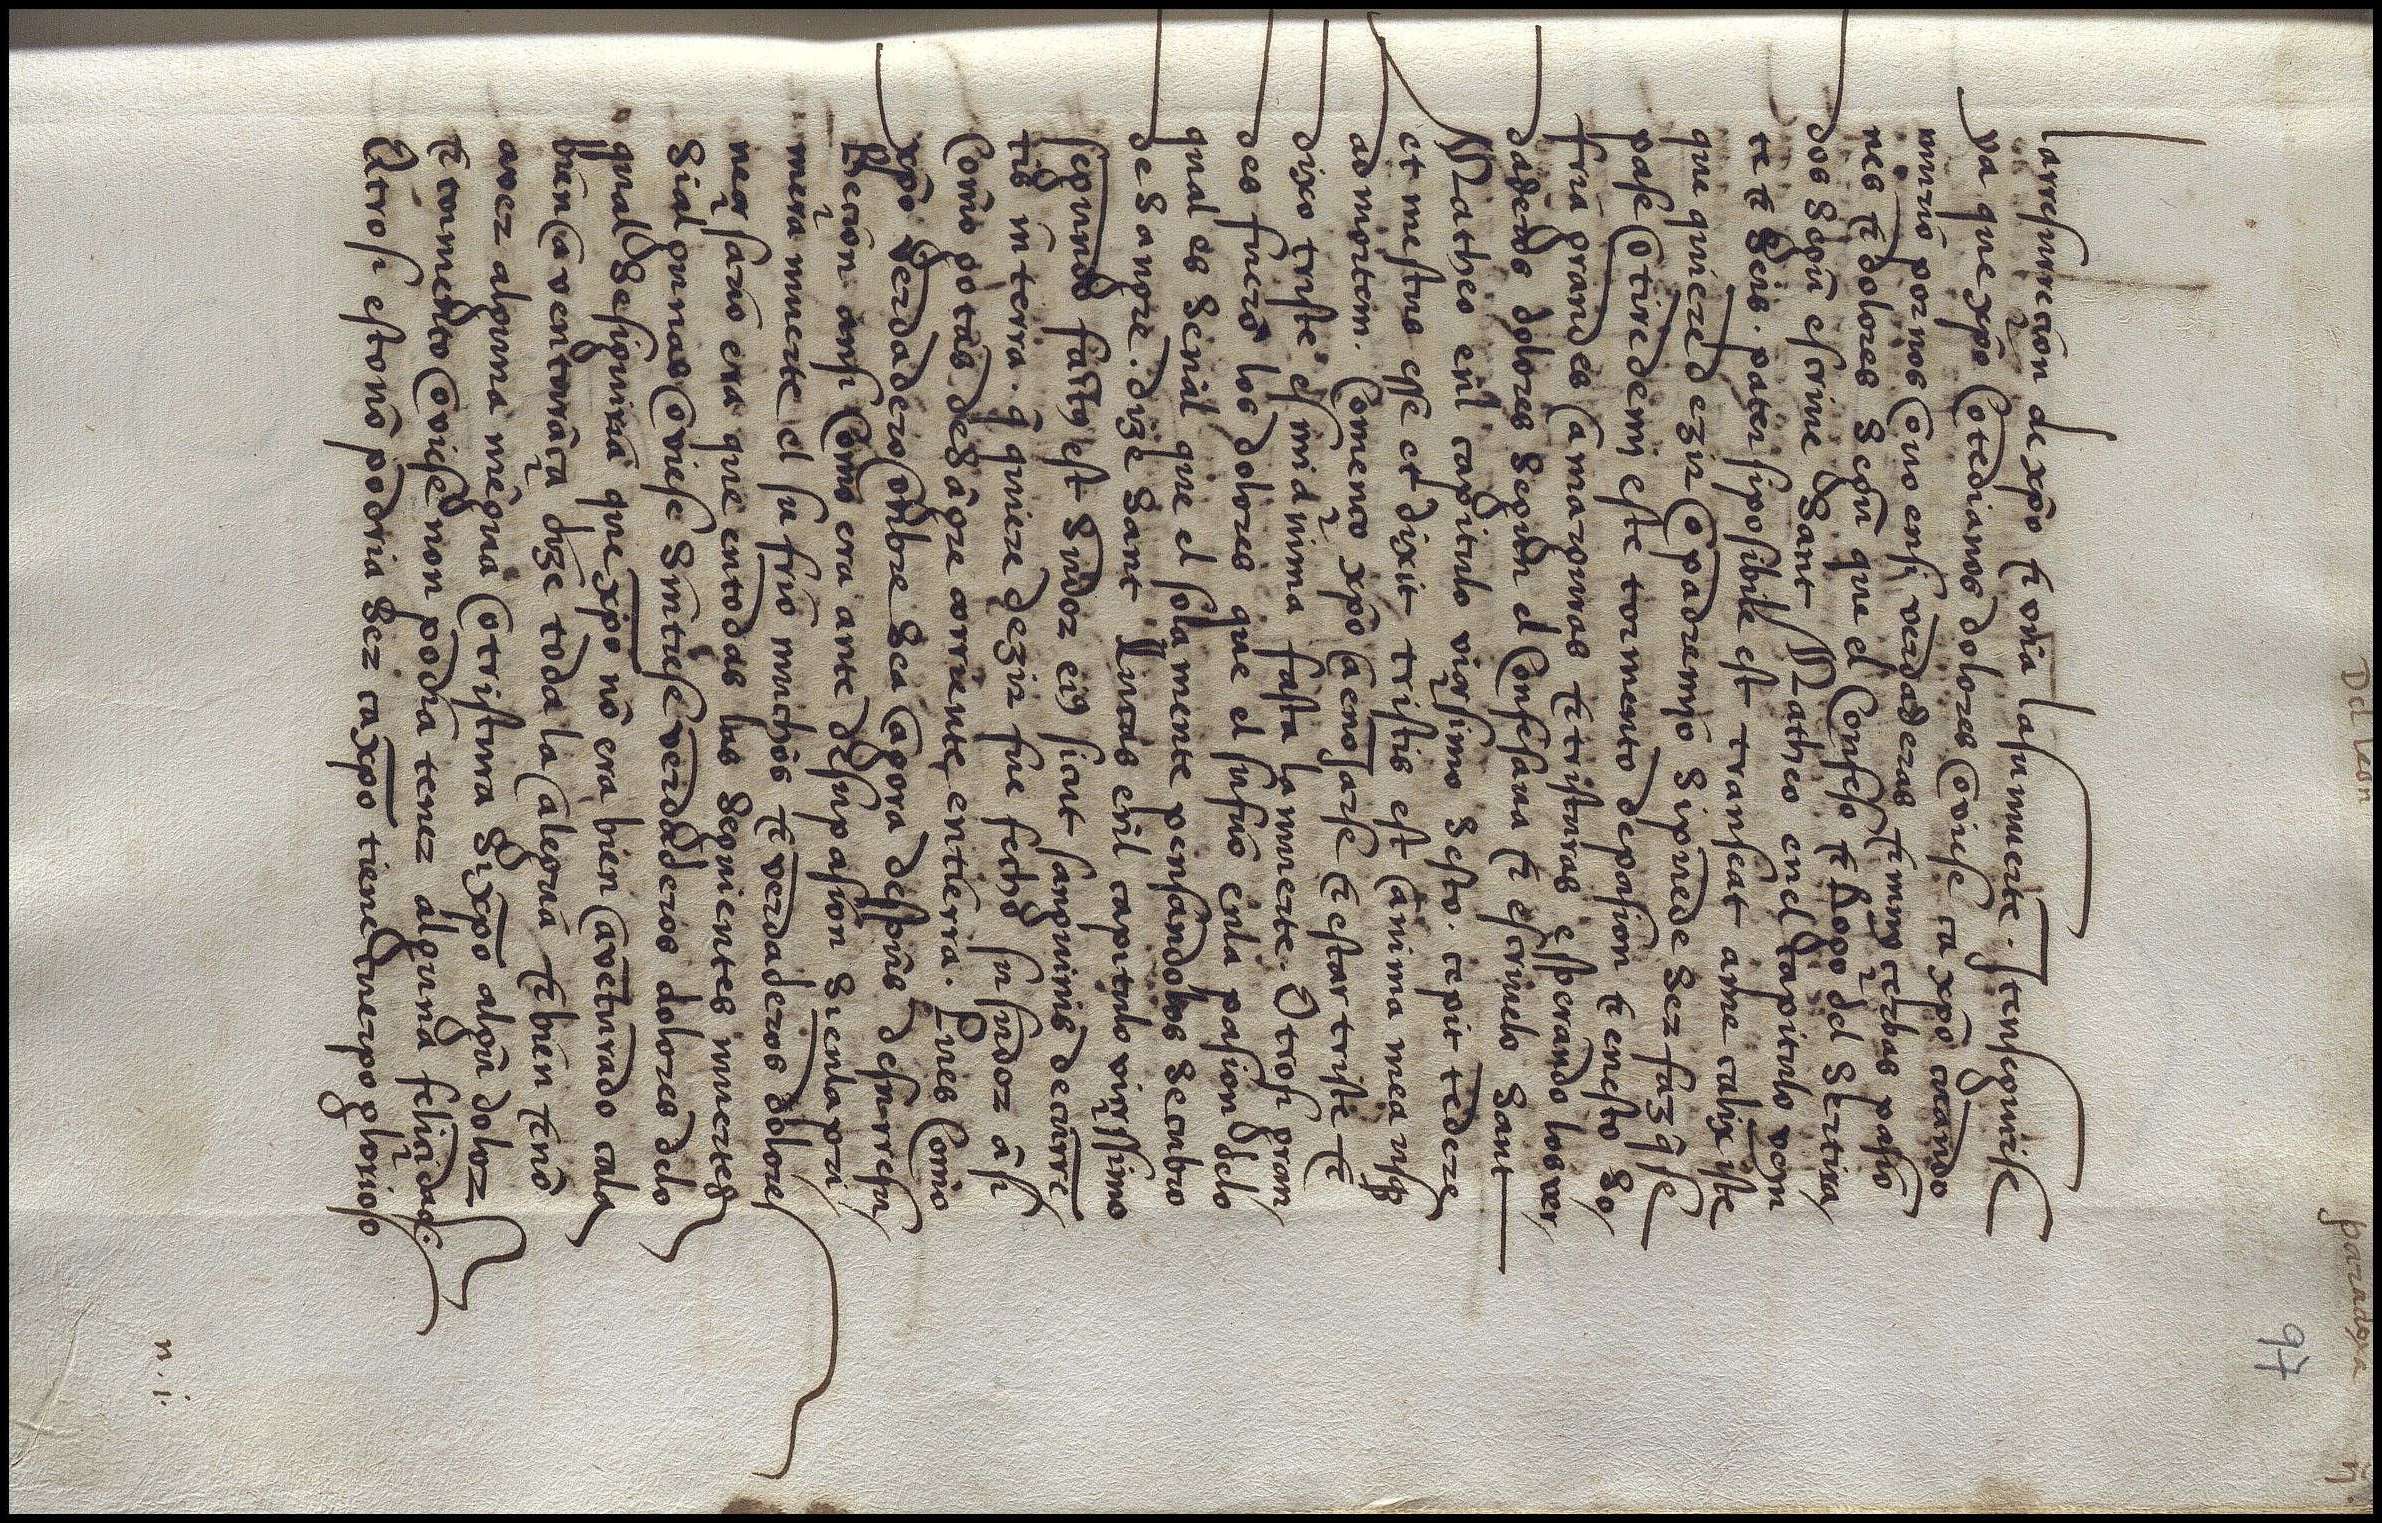 Del leon
paradoxa
ij.
97
la rresurreçion de xpō τ una la su muerte. Itensi gunise
ya que xpō cotedianos dolores coviese ca xpō quando
murio por nos ovo en si verdaderas τ muy çiertas pasio
nes τ dolores segū que el confeso τ rrogo del sertiray
dos segū escrive sant Matheo enel capitulo veyn
te τ seis. pater si posibile est transeat a me calix iste
que quiere dezir o padre mio si puede ser faz q̄ se
pase o tire de mi este tormento de pasion τ en esto so
fria grandes amarguras τ tristuras esperando los ver
daderos dolores segun el confesava τ escrivelo sant
Matheo enl capitulo vigesimo sesto. cepit tedere
et mestus esse et dixit tristis est anima mea usq̄
ad mortem. Començo xpō a enojarse τ estar triste τ
dixo triste es mi anima fasta la muerte. Otrosi gran
des fuero los dolores que el sufrio enla pasion delo
qual es señal que el sola mente pensandolos se cubrio
de sangre. dize sant Lucas enl capitulo vigessimo
segundo factus est sudor eius sicut sanguinis decurre
tis in terra. q̄ quiere dezir fue fecho su sudor asi
como gotas de sāgre corriente en tierra. Pues como
xpō verdadero onbre sea agora despues de su rresu
rreçion ansi como era ante de su pasion si en la pri
mera muerte el sufrio muchos τ verdaderos dolores
neçesario era que en todas las seguientes muertes
si algunas oviese sintiese verdaderos dolores delo
qual se siguiria que xpō nō era bien aventurado ca la
bien aventurāça dize toda la alegria τ bien τ nō
aver alguna mēgua o tristura si xpō algū dolor
τ tormēto oviese non podria tener alguna feliçidad.
Otrosi esto nō podria ser ca xpō tiene cuerpo glorioso
n. i.